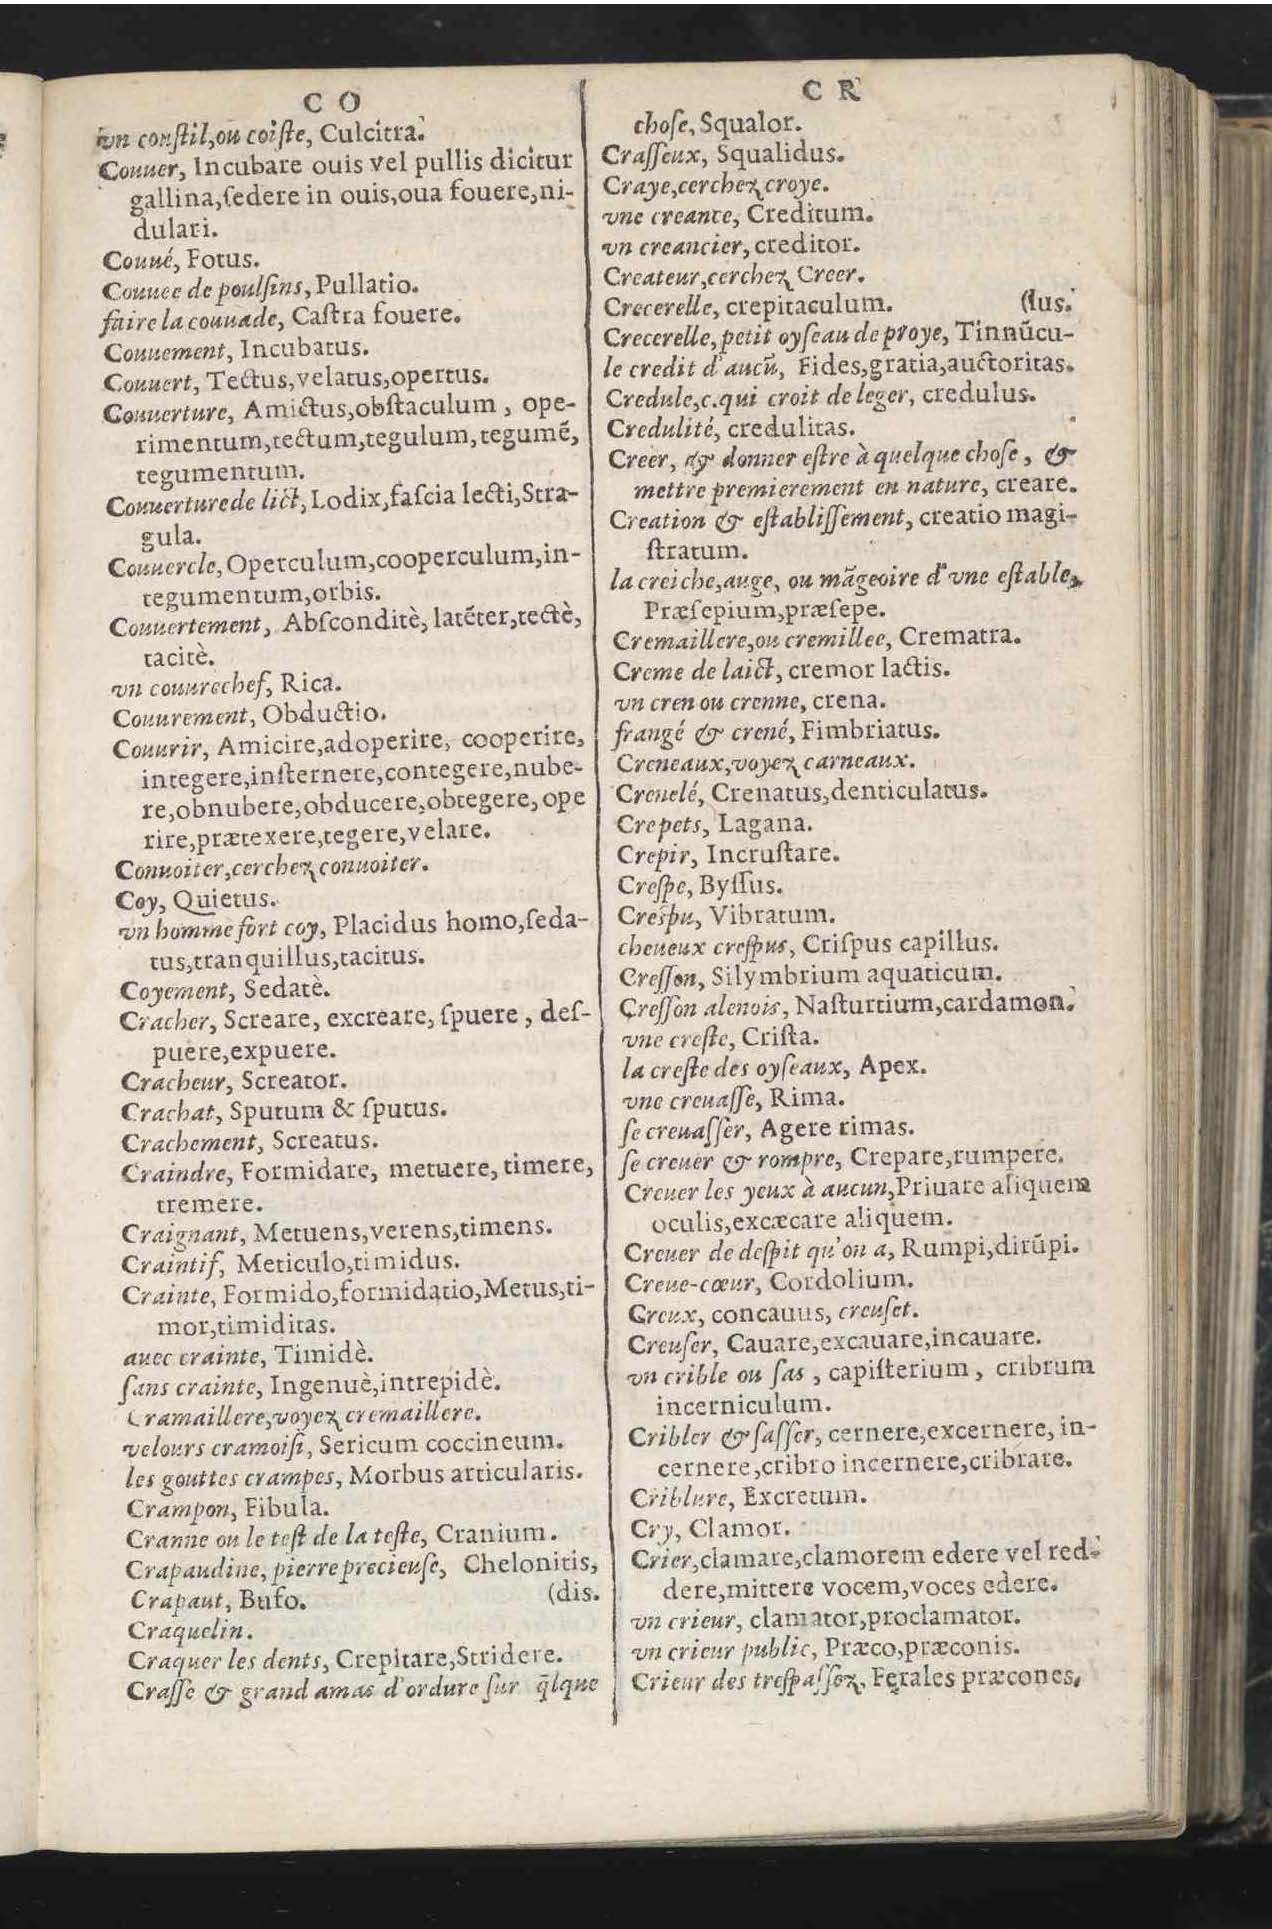 C O
vn conſtil,ou coiſte, Culcitra.
Couuer, Incubare ouis vel pullis dicitur
gallina,ſedere in ouis,oua fouere,ni-
dulari.
Couué, Fotus.
Couuee de poulſins, Pullatio.
faire la couuade, Caſtra fouere.
Couuement, Incubatus.
Couuert, Tectus,velatus,opertus.
Couuerture, Amictus,obſtaculum, ope-
rimentum,tectum,tegulum,tegumẽ,
tegumentum.
Couuerture de lict, Lodix,faſcia lecti,Stra-
gula.
Couuercle, Operculum,cooperculum,in-
tegumentum,orbis.
Couuertement, Abſconditè, latẽter,tectè,
tacitè.
vn couurechef, Rica.
Couurement, Obductio.
Couurir, Amicire,adoperire, cooperire,
integere,inſternere,contegere,nube-
re,obnubere,obducere,obtegere, ope
rire,prætexere,tegere,velare.
Conuoiter,cerchez conuoiter.
Coy, Quietus.
vn homme fort coy, Placidus homo,ſeda-
tus,tranquillus,tacitus.
Coyement, Sedatè.
Cracher, Screare, excreare, ſpuere, deſ-
puere,expuere.
Cracheur, Screator.
Crachat, Sputum & ſputus.
Crachement, Screatus.
Craindre, Formidare, metuere, timere,
tremere.
Craignant, Metuens,verens,timens.
Craintif, Meticulo,timidus.
Crainte, Formido,formidatio,Metus,ti-
mor,timiditas.
auec crainte, Timidè.
ſans crainte, Ingenuè,intrepidè.
Cramaillere,voyez cremaillere.
velours cramoiſi, Sericum coccineum.
les gouttes crampes, Morbus articularis.
Crampon, Fibula.
Cranne ou le teſt de la teſte, Cranium.
Crapaudine, pierre precieuſe, Chelonitis,
Crapaut, Bufo. (dis.
Craquelin.
Craquer les dents, Crepitare,Stridere.
Craſſe & grand amas d'ordure ſur q̃lque
C R
choſe, Squalor.
Craſſeux, Squalidus.
Craye,cerchez croye.
vne creance, Creditum.
vn creancier, creditor.
Createur,cerchez Creer.
Crecerelle, crepitaculum. (lus.
Crecerelle, petit oyſeau de proye, Tinnũcu-
le credit d'aucũ, Fides,gratia,auctoritas.
Credule,c.qui croit de leger, credulus.
Credulité, credulitas.
Creer, & donner eſtre à quelque choſe, &
mettre premierement en nature, creare.
Creation & eſtabliſſement, creatio magi-
ſtratum.
la creiche,auge, ou mãgeoire d'vne eſtable,
Præſepium,præſepe.
Cremaillere,ou cremillee, Crematra.
Creme de laict, cremor lactis.
vn cren ou crenne, crena.
frangé & crené, Fimbriatus.
Creneaux,voyez carneaux.
Crenelé, Crenatus,denticulatus.
Crepets, Lagana.
Crepir, Incruſtare.
Creſpe, Byſſus.
Creſpu, Vibratum.
cheueux creſpus, Criſpus capillus.
Creſſon, Silymbrium aquaticum.
Creſſon alenois, Naſturtium,cardamon.
vne creſte, Criſta.
la creſte des oyſeaux, Apex.
vne creuaſſe, Rima.
ſe creuaſſer, Agere rimas.
ſe creuer & rompre, Crepare,rumpere.
Creuer les yeux à aucun,Priuare aliquem
oculis,excæcare aliquem.
Creuer de deſpit qu'on a, Rumpi,dirũpi.
Creue-cœur, Cordolium.
Creux, concauus, creuſet.
Creuſer, Cauare,excauare,incauare.
vn crible ou ſas, capiſterium, cribrum
incerniculum.
Cribler & ſaſſer, cernere,excernere, in-
cernere,cribro incernere,cribrare.
Criblure, Excretum.
Cry, Clamor.
Crier,clamare,clamorem edere vel red-
dere,mittere vocem,voces edere.
vn crieur, clamator,proclamator.
vn crieur public, Præco,præconis.
Crieur des treſpaſſez, Ferales præcones.